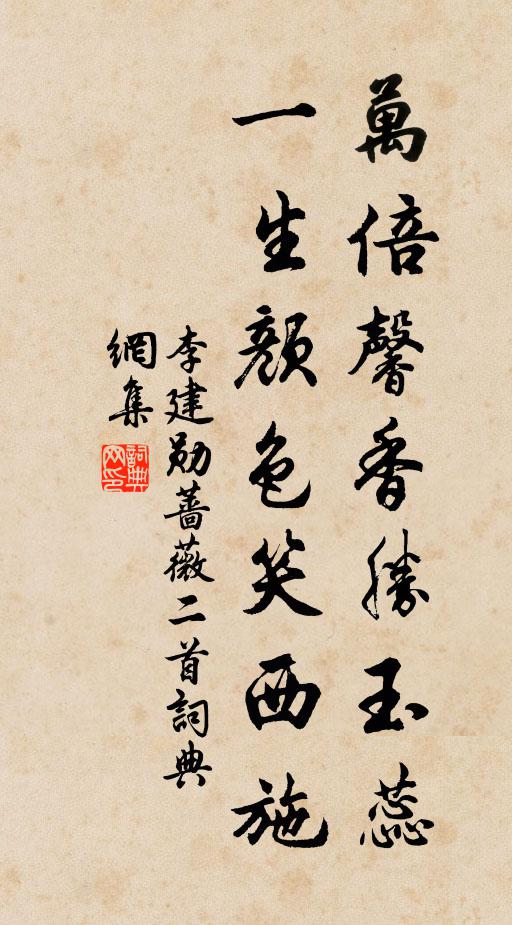 萬倍馨香勝玉蕊
一生顏色笑西施
李建勛薔薇二首詞典
網集
詞典网印